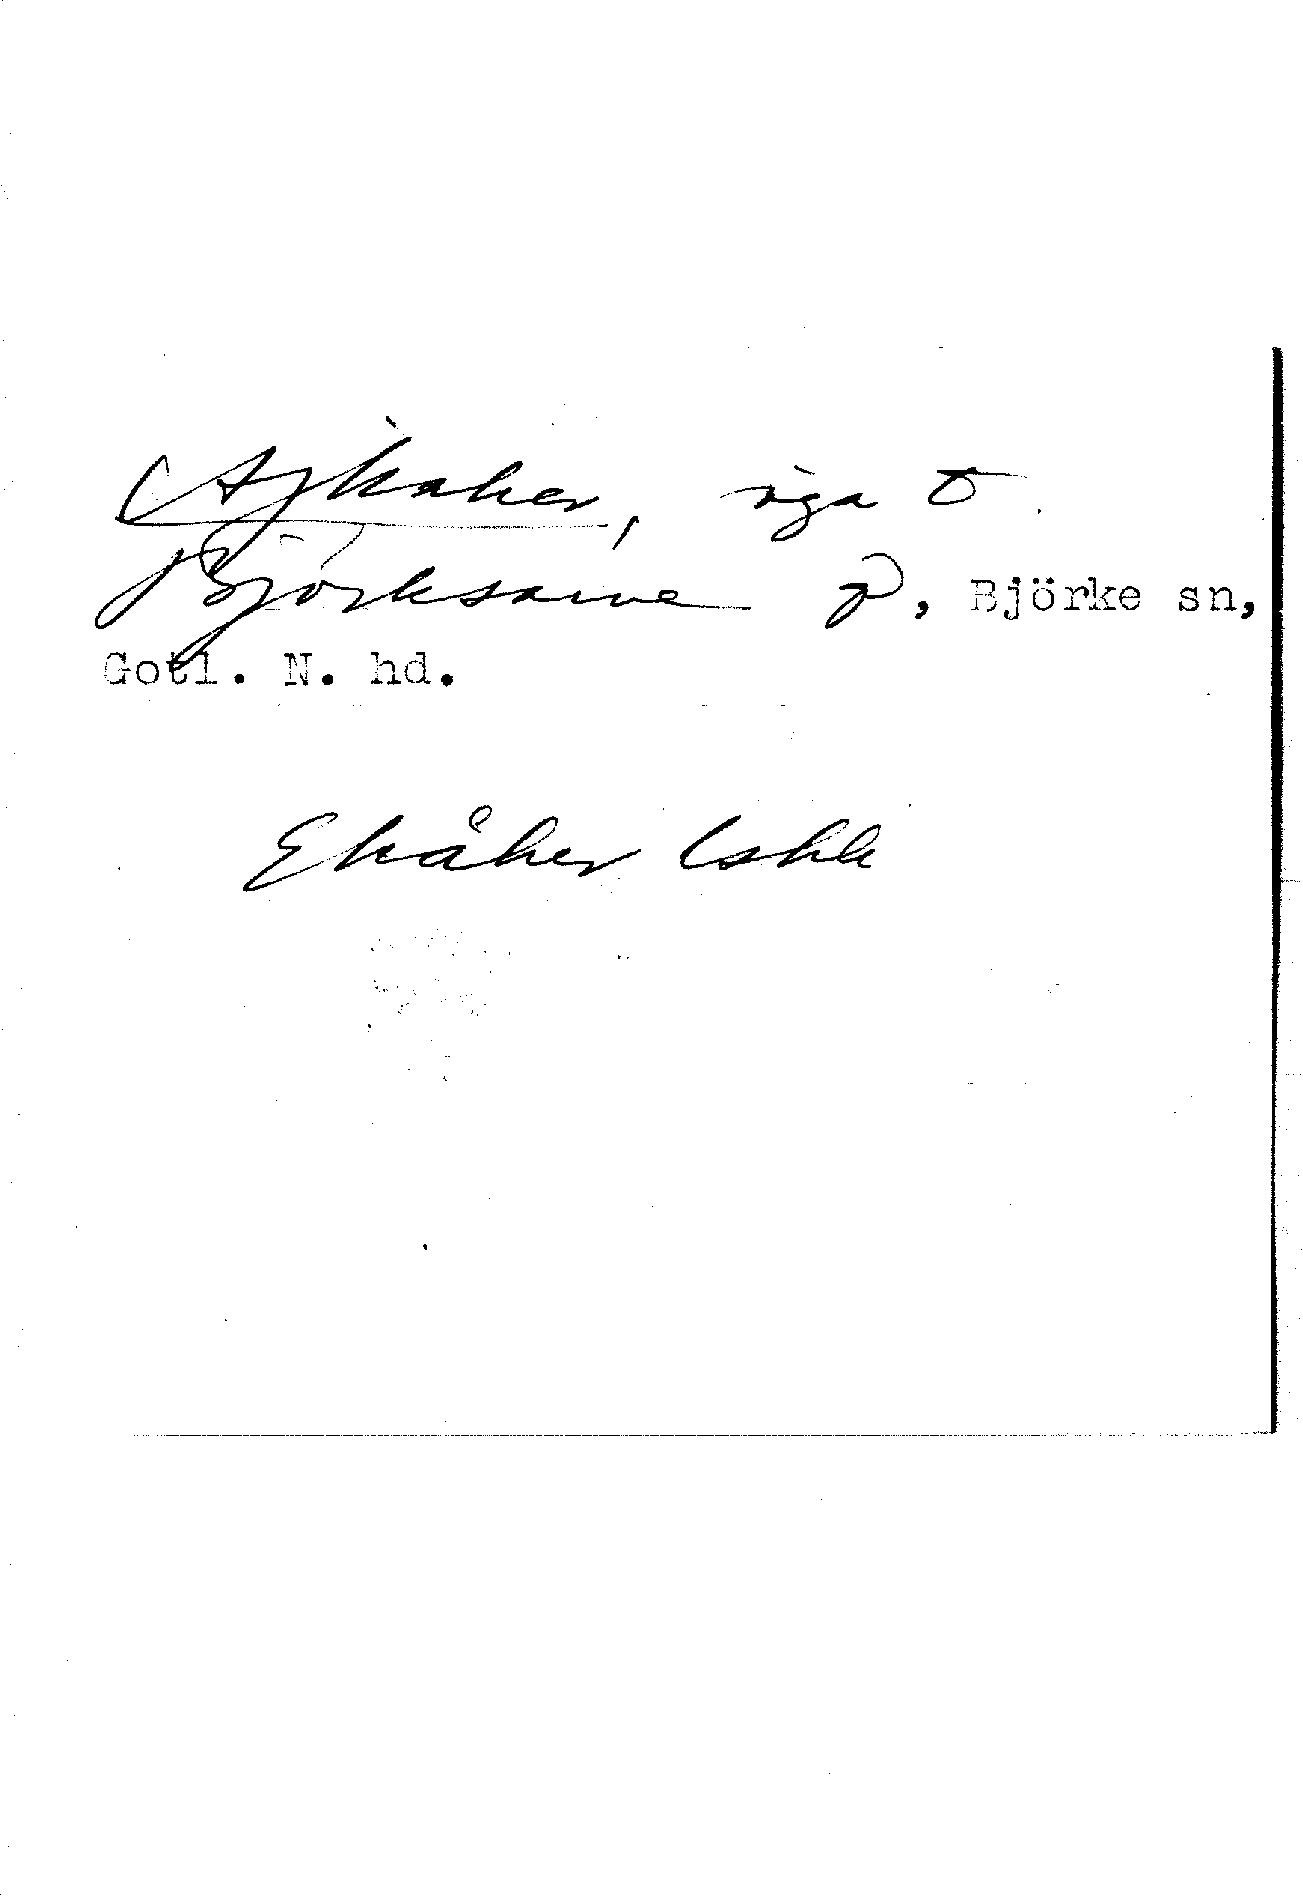 Ajkaker, äga t.
Björksarve P, Björke sn,
Gotl. N. hd.
Ekåker Lskk